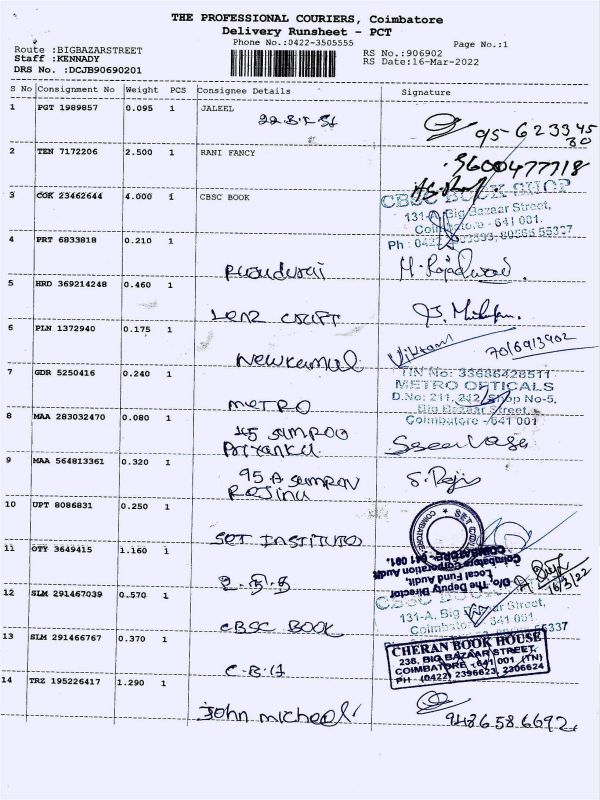 THE PROFESSIONAL COURIERS, Coimbatore
Delivery Runsheet - PCT
Phone No.:0422-3505555
Page No.:1
Route :BIGBAZARSTREET
Staff :KENNADY
DRS No. :DCJB90690201
RS No.:906902
RS Date:16-Mar-2022
S No Consignment No Weight PCS Consignee Details Signature
1 PGT 1989857 0.095 1 JALEEL
95-623345
30
2 TEN 7172206 2.500 1 RANI FANCY
9600477718
3 COK 23462644 4.000 1 CBSC BOOK
CBSC BOOK SHOP
131-A, Big Bazaar Street,
Coimbatore - 641 001.
4 PRT 6833818 0.210 1
5 HRD 369214248 0.460 1
6 PLN 1372940 0.175 1
Newkamal
Vikram
7016913902
7 GDR 5250416 0.240 1
METRO
TIN No: 33686428511
METRO OPTICALS
D.No: 211, 212, Shop No-5,
Big Bazaar Street,
Coimbatore - 641 001
8 MAA 283032470 0.080 1
Priyanka
9 MAA 564813361 0.320 1
95 A
S. Raji
10 UPT 8086831 0.250 1
SET INSTITUTO
11 OTY 3649415 1.160 1
O/o The Deputy Director
Local Fund Audit,
Coimbatore Corporation Audit
COIMBATORE - 641 001.
16/3/22
12 SLM 291467039 0.570 1
CBSC BOOK
131-A, Big Bazaar Street,
Coimbatore - 641 001.
13 SLM 291466767 0.370 1
C.B.H
CHERAN BOOK HOUSE
238, BIG BAZAAR STREET,
COIMBATORE - 641 001 (TN)
PH : (0422) 2396623, 2306624
14 TRZ 195226417 1.290 1
John micheal
9486586692